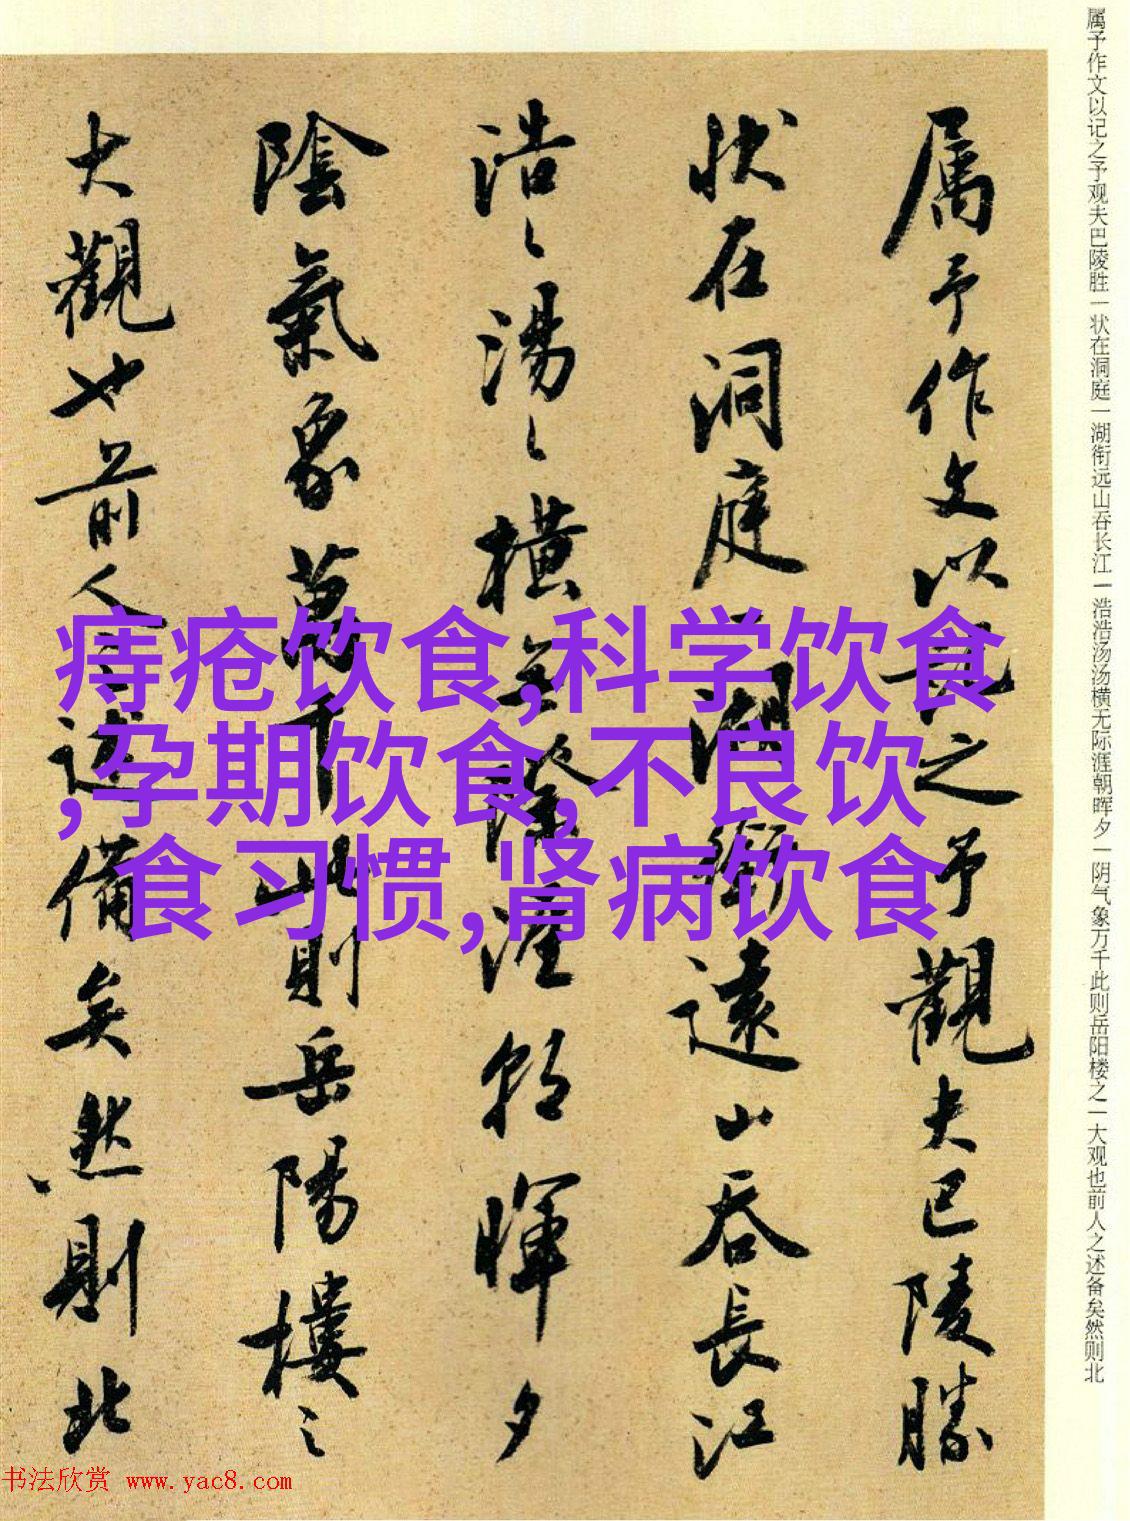 属予作文以记之予观夫巴陵胜一状在洞庭一湖衔远山吞长江一浩浩汤汤横无际涯朝晖夕一阴气象万千此则岳阳楼之一大观也前人之述备矣然则北
属予作文以記之予觀夫巴陵勝
状在洞庭一湖銜遠山吞長江
浩〻湯〻橫無際涯朝暉夕
陰氣象萬千此則岳陽樓之
大觀也前人之述備矣然則北
痔疮饮食,科学饮食
,孕期饮食,不良饮
食习惯,肾病饮食
书法欣赏 www.yac8.com